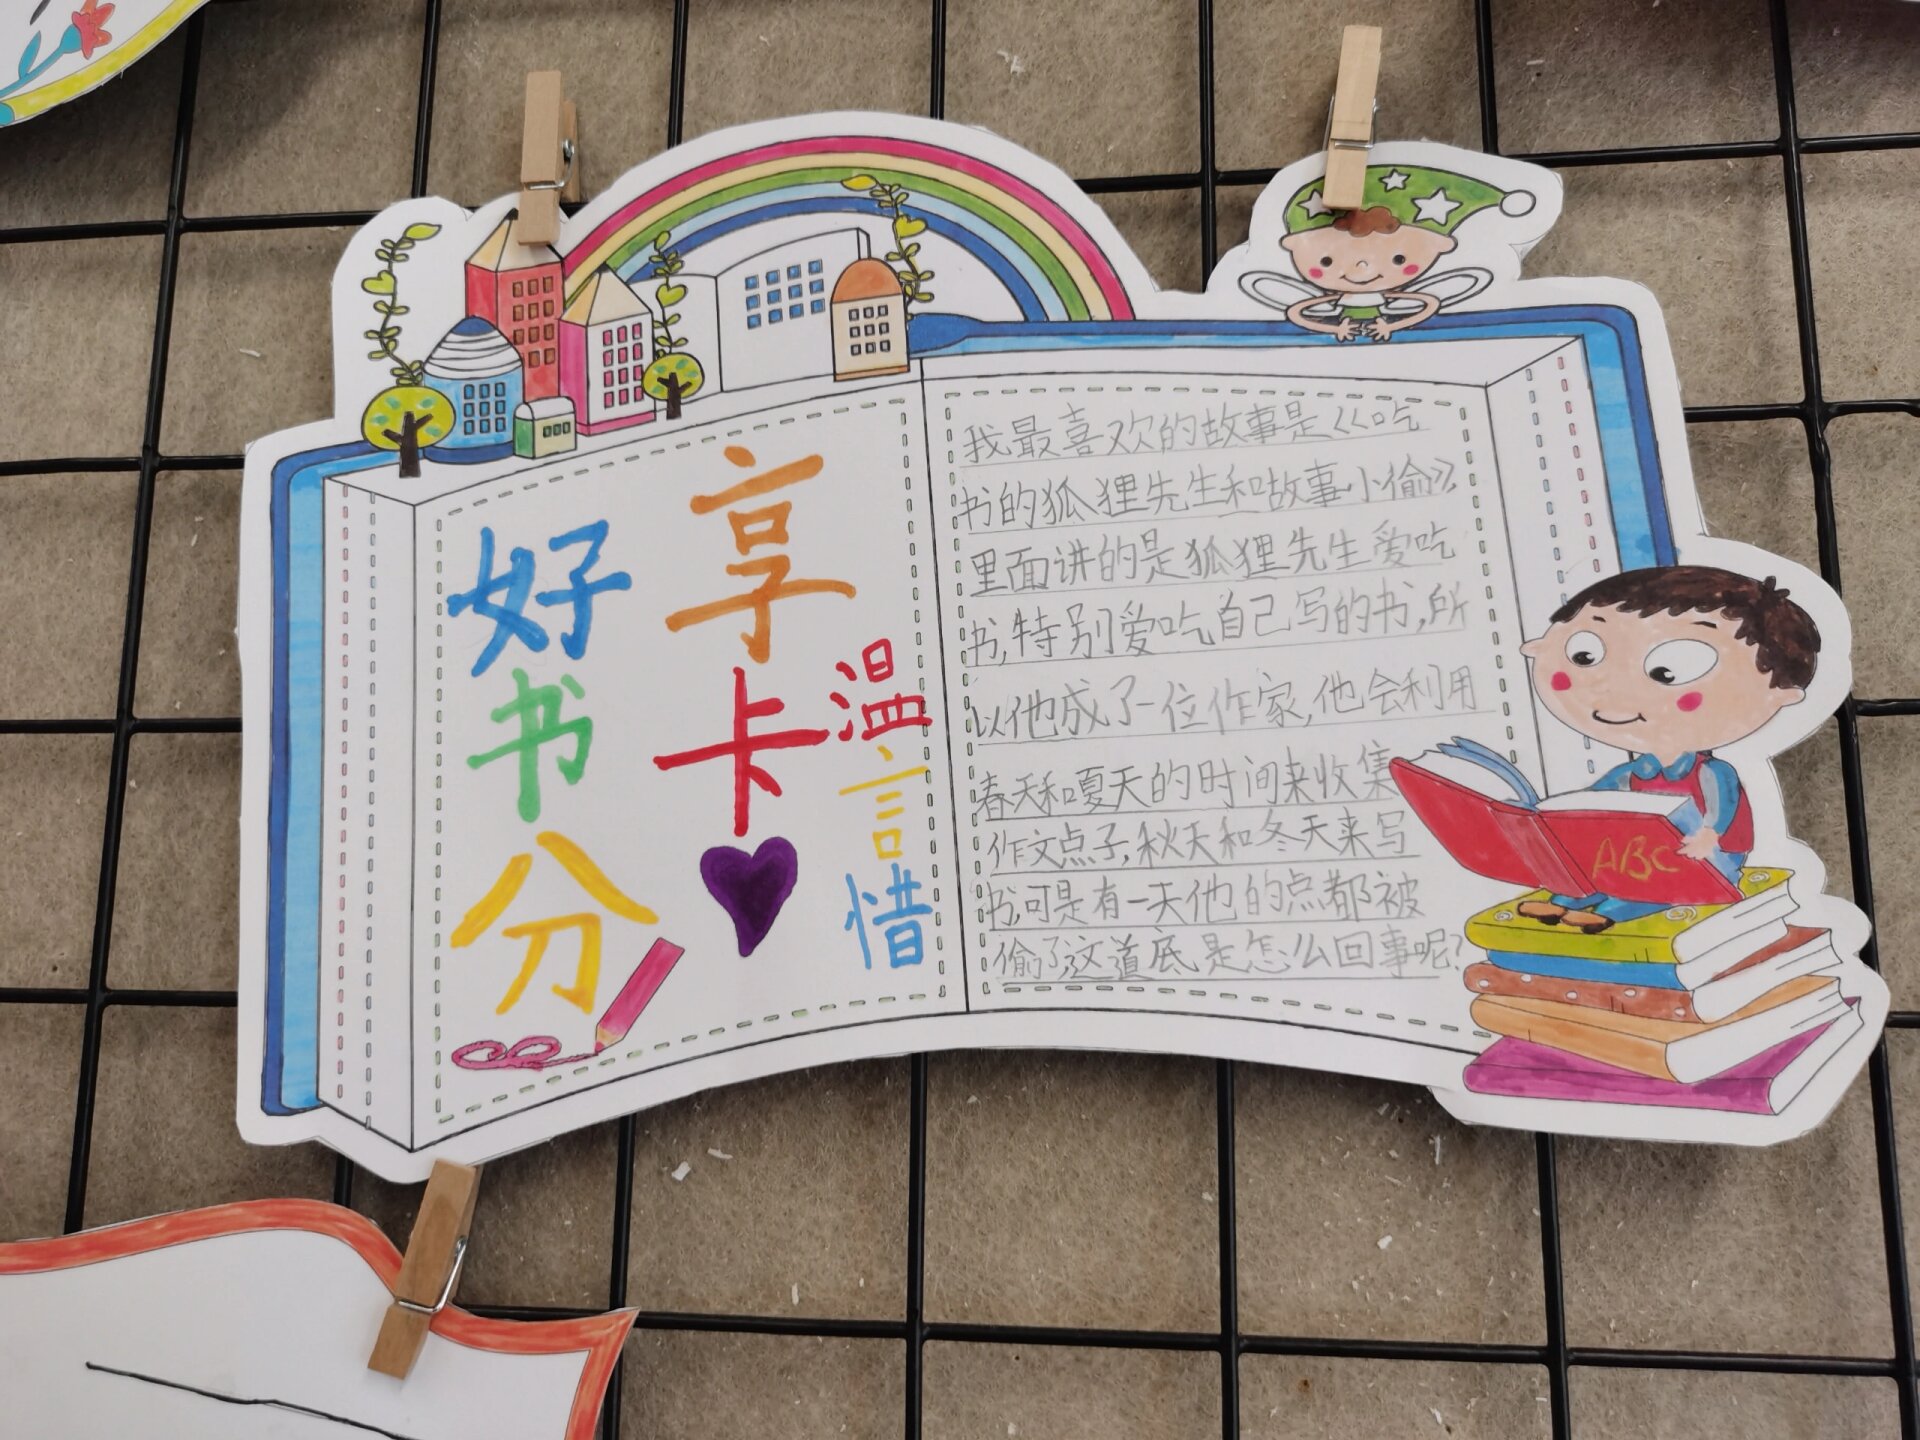 好书分
享卡
温言惜
我最喜欢的故事是《吃
书的狐狸先生和故事小偷》,
里面讲的是狐狸先生爱吃
书,特别爱吃自己写的书,所
以他成了一位作家,他会利用
春天和夏天的时间来收集
作文点子,秋天和冬天来写
书,可是有一天他的点都被
偷了,这道底是怎么回事呢?
ABC